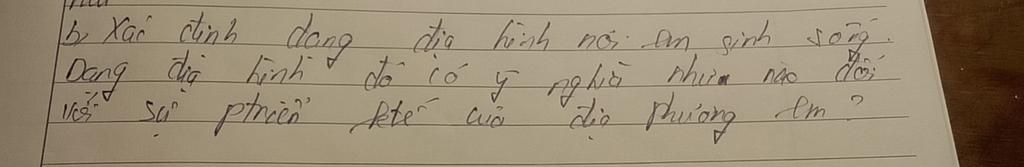 b, Xác định dạng địa hình nơi em sinh sống.
Dạng địa hình đó có ý nghĩa như nào đối
với sự ptriển ktế của địa phương em?